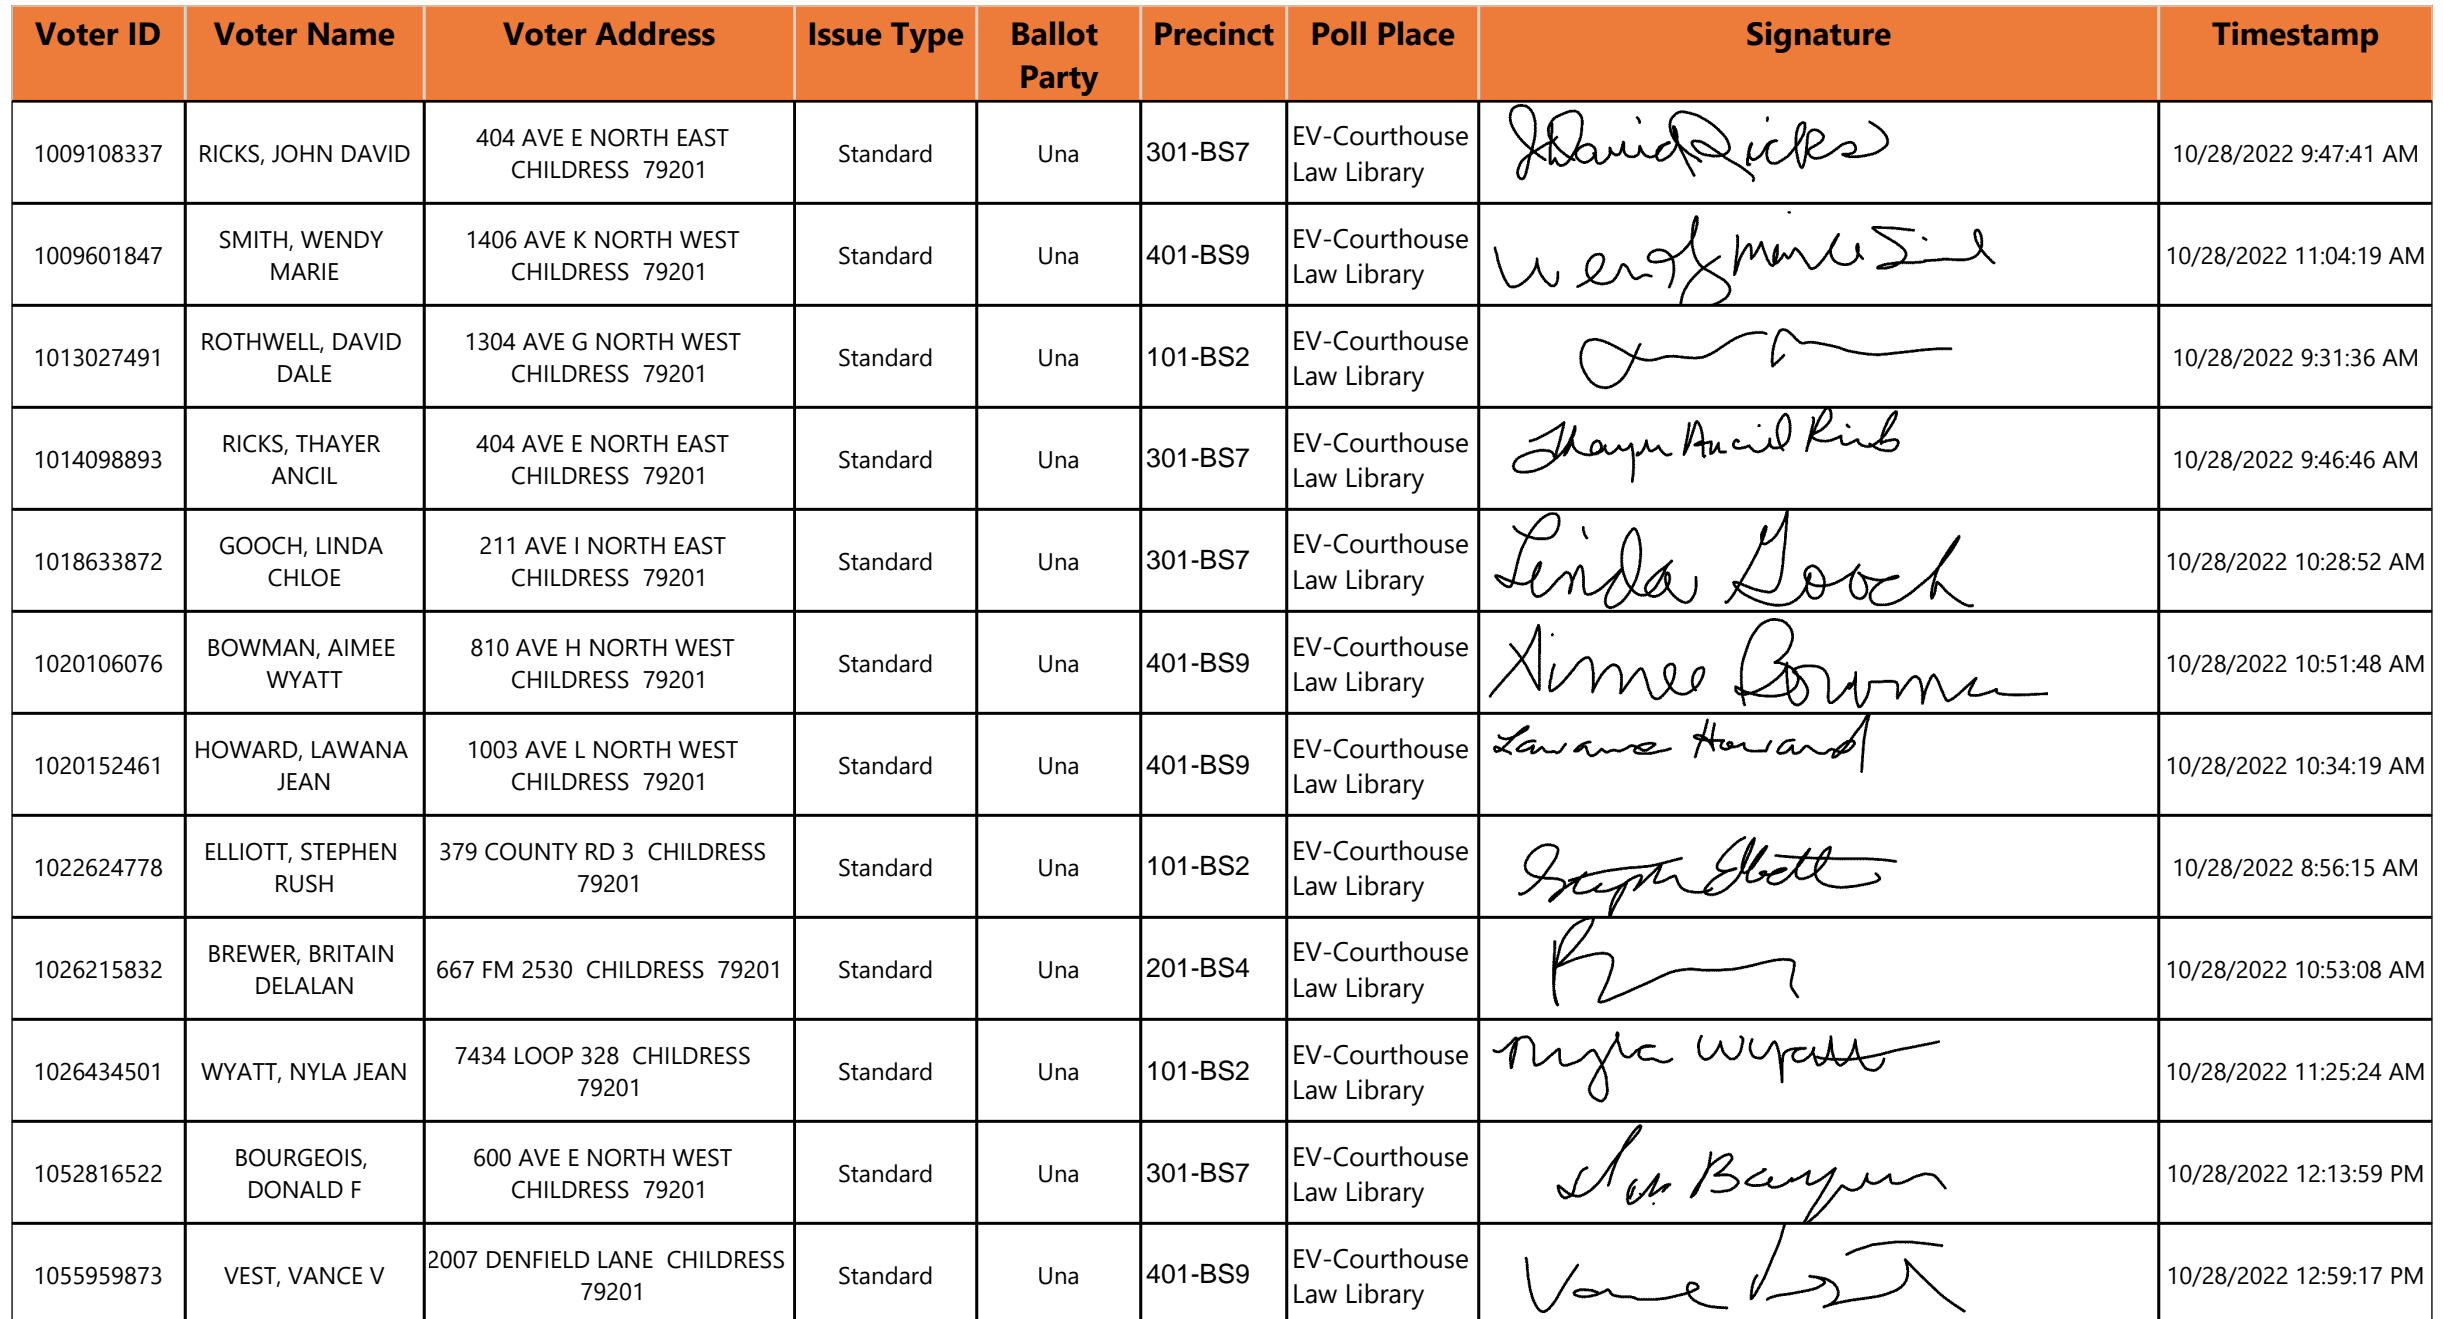 Voter ID Voter Name Voter Address Issue Type Ballot Party Precinct Poll Place Signature Timestamp
1009108337 RICKS, JOHN DAVID 404 AVE E NORTH EAST CHILDRESS 79201 Standard Una 301-BS7 EV-Courthouse Law Library J David Ricks 10/28/2022 9:47:41 AM
1009601847 SMITH, WENDY MARIE 1406 AVE K NORTH WEST CHILDRESS 79201 Standard Una 401-BS9 EV-Courthouse Law Library 10/28/2022 11:04:19 AM
1013027491 ROTHWELL, DAVID DALE 1304 AVE G NORTH WEST CHILDRESS 79201 Standard Una 101-BS2 EV-Courthouse Law Library 10/28/2022 9:31:36 AM
1014098893 RICKS, THAYER ANCIL 404 AVE E NORTH EAST CHILDRESS 79201 Standard Una 301-BS7 EV-Courthouse Law Library Thayer Ancil Ricks 10/28/2022 9:46:46 AM
1018633872 GOOCH, LINDA CHLOE 211 AVE I NORTH EAST CHILDRESS 79201 Standard Una 301-BS7 EV-Courthouse Law Library Linda Gooch 10/28/2022 10:28:52 AM
1020106076 BOWMAN, AIMEE WYATT 810 AVE H NORTH WEST CHILDRESS 79201 Standard Una 401-BS9 EV-Courthouse Law Library Aimee Bowman 10/28/2022 10:51:48 AM
1020152461 HOWARD, LAWANA JEAN 1003 AVE L NORTH WEST CHILDRESS 79201 Standard Una 401-BS9 EV-Courthouse Law Library Lawana Howard 10/28/2022 10:34:19 AM
1022624778 ELLIOTT, STEPHEN RUSH 379 COUNTY RD 3 CHILDRESS 79201 Standard Una 101-BS2 EV-Courthouse Law Library Stephen Elliott 10/28/2022 8:56:15 AM
1026215832 BREWER, BRITAIN DELALAN 667 FM 2530 CHILDRESS 79201 Standard Una 201-BS4 EV-Courthouse Law Library 10/28/2022 10:53:08 AM
1026434501 WYATT, NYLA JEAN 7434 LOOP 328 CHILDRESS 79201 Standard Una 101-BS2 EV-Courthouse Law Library Nyla Wyatt 10/28/2022 11:25:24 AM
1052816522 BOURGEOIS, DONALD F 600 AVE E NORTH WEST CHILDRESS 79201 Standard Una 301-BS7 EV-Courthouse Law Library 10/28/2022 12:13:59 PM
1055959873 VEST, VANCE V 2007 DENFIELD LANE CHILDRESS 79201 Standard Una 401-BS9 EV-Courthouse Law Library Vance Vest 10/28/2022 12:59:17 PM